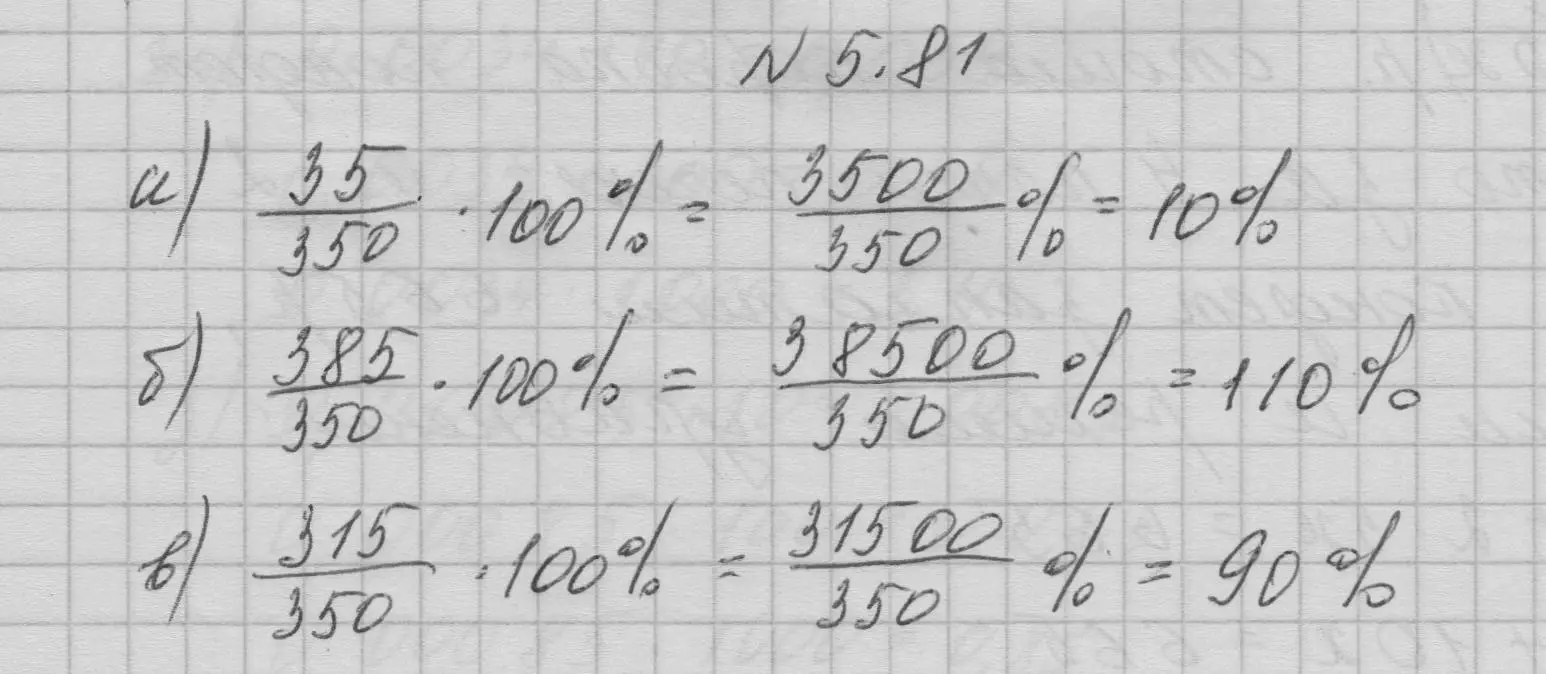 N 5.81
а) 35/350 · 100% = 3500/350 % = 10%
б) 385/350 · 100% = 38500/350 % = 110%
в) 315/350 · 100% = 31500/350 % = 90%